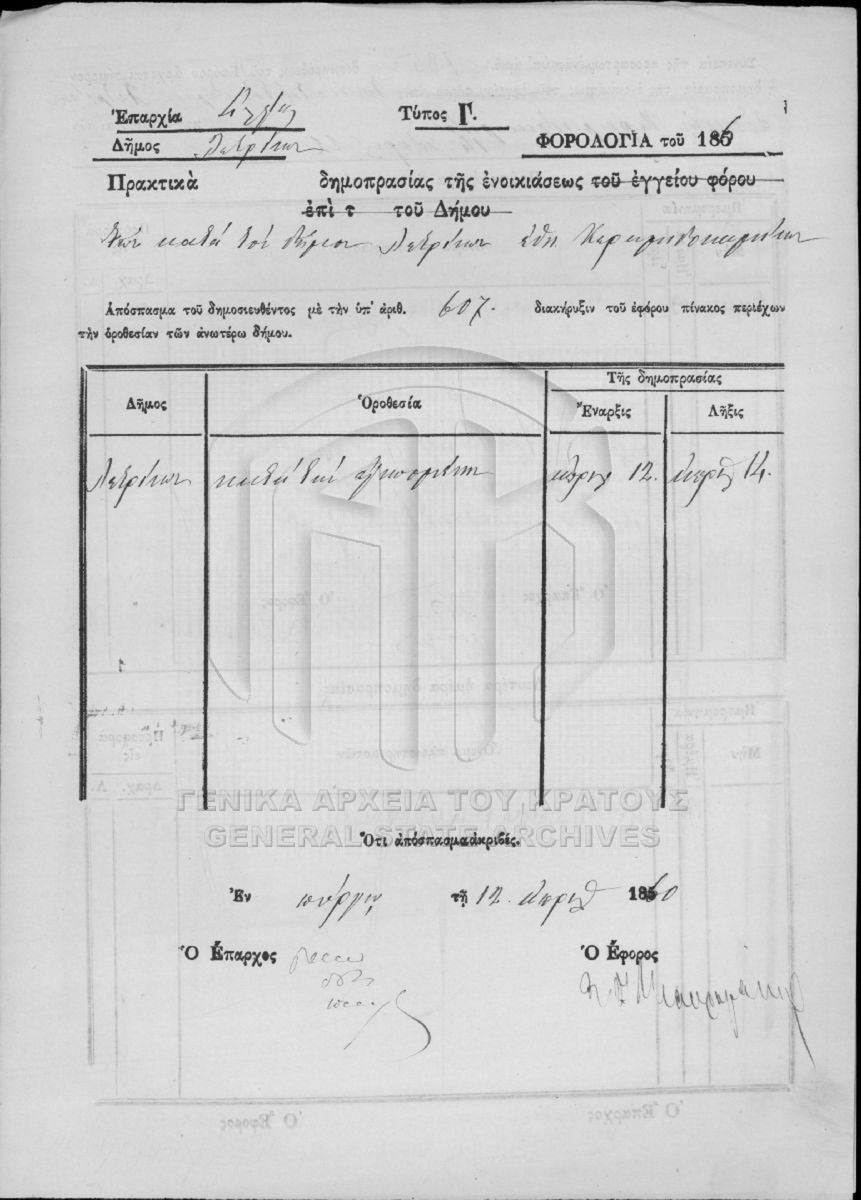 Ἐπαρχία Ἠλείας Τύπος Γ.
Δῆμος Λετρίνων ΦΟΡΟΛΟΓΙΑ τοῦ 186
Πρακτικὰ δημοπρασίας τῆς ἐνοικιάσεως τοῦ ἐγγείου φόρου
ἐπὶ τ τοῦ Δήμου
τῶν κατὰ τὸν δῆμον Λετρίνων
Ἀπόσπασμα τοῦ δημοσιευθέντος μὲ τὴν ὑπ' ἀριθ. 607. διακήρυξιν τοῦ ἐφόρου πίνακος περιέχων
τὴν ὁροθεσίαν τῶν ἀνωτέρω δήμου.
Τῆς δημοπρασίας
Δῆμος Ὁροθεσία Ἔναρξις Λῆξις
Λετρίνων κατὰ τὴν ἀπριλ 12. ἀπριλ 14.
ΓΕΝΙΚΑ ΑΡΧΕΙΑ ΤΟΥ ΚΡΑΤΟΥΣ
GENERAL STATE ARCHIVES
Ὅτι ἀπόσπασμα ἀκριβές.
Ἐν πύργῳ τῇ 12. ἀπριλ 1860
Ὁ Ἔπαρχος Ὁ Ἔφορος